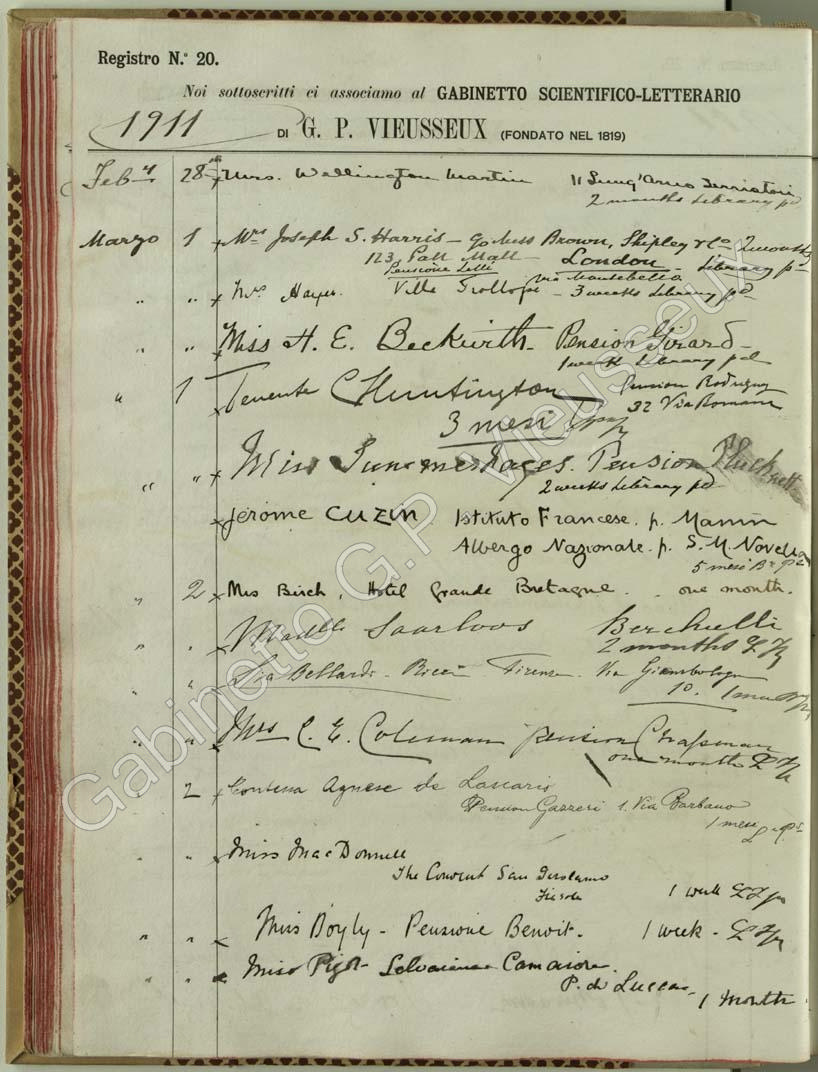 Registro N.º 20.
Noi sottoscritti ci associamo al GABINETTO SCIENTIFICO-LETTERARIO
1911 DI G. P. VIEUSSEUX (FONDATO NEL 1819)
Feby 28th Mrs. Wellington Martin 11 Lung'Arno Serristori
2 months Library pd
Marzo 1 Mrs Joseph S. Harris - c/o Mess Brown, Shipley & Co 2 months
123 Pall Mall - London - Library pd
Pensione Lelli via Montebello
" " Mrs Hayes. Villa Trollope - 3 weeks Library pd
" " Miss H. E. Beckwith - Pension Girard -
1 week Library pd
" 1 Tenente C Huntington Pension
32 Via Romana
3 mesi
" " Miss Pension
2 weeks Library pd
Jérome CUZIN Istituto Francese. p. Manin
Albergo Nazionale. p. S. M. Novella
5 mesi
" 2 Mrs Birch, Hotel Grande Bretagne. . one month.
" " Madlle Saarloos Berchielli
2 months
" " Firenze Via Giambologna
10.
" " Mrs C. E. Coleman pension Chapman
one month
2 Contessa Agnese de Lascaris
Pension Gazzeri 1. Via Barbano
1 mese
" " Miss MacDonnell
The Convent San Girolamo
Fiesole 1 week
" " Miss Boyly - Pensione Benoit. 1 week -
" " Miss Pigot Camaiore.
P. di Lucca - 1 Month
Gabinetto G.P. Vieusseux